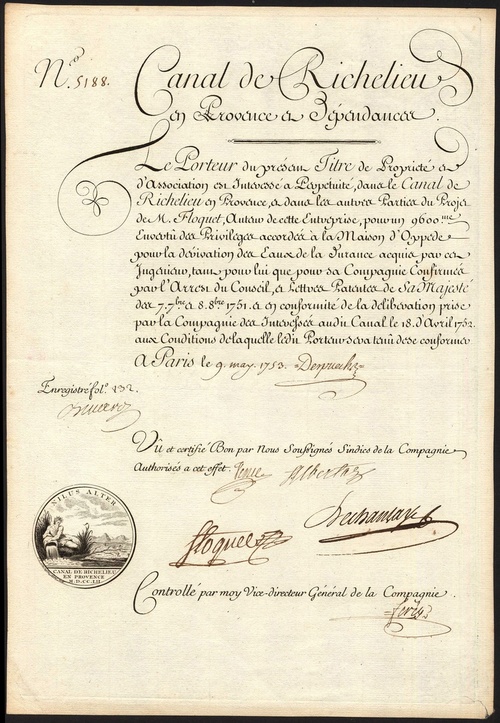 N.ro 5188.
Canal de Richelieu
en Provence et Dépendances.
Le Porteur du présent Titre de Proprieté et
d'Association est Interessé a Perpetuité, dans le Canal de
Richelieu en Provence, et dans les autres Parties du Projet
de M. Floquet, Auteur de cette Entreprise, pour un 9600.me
Envertu des Privileges accordés à la Maison d'Oppede
pour la dérivation des Eaux de la Durance acquis par cet
Ingenieur, tant pour lui que pour sa Compagnie Confirmés
par l'Arrest du Conseil, et Lettres Patentes de Sa Majesté
des 7.7.bre et 8.8bre 1751. et en conformité de la déliberation prise
par la Compagnie des Interessés audit Canal le 18. d'Avril 1752.
aux Conditions de laquelle ledit Porteur sera tenu de se conformer
A Paris le 9. may. 1753. Depuech
Enregistré fol.o 132.
Vû et certifié Bon par Nous Soussignés Sindics de la Compagnie
Authorisés a cet effet.
Floquet
NILUS ALTER
CANAL DE RICHELIEU
EN PROVENCE
M.D.CC.LII
Controllé par moy Vice-directeur Général de la Compagnie.